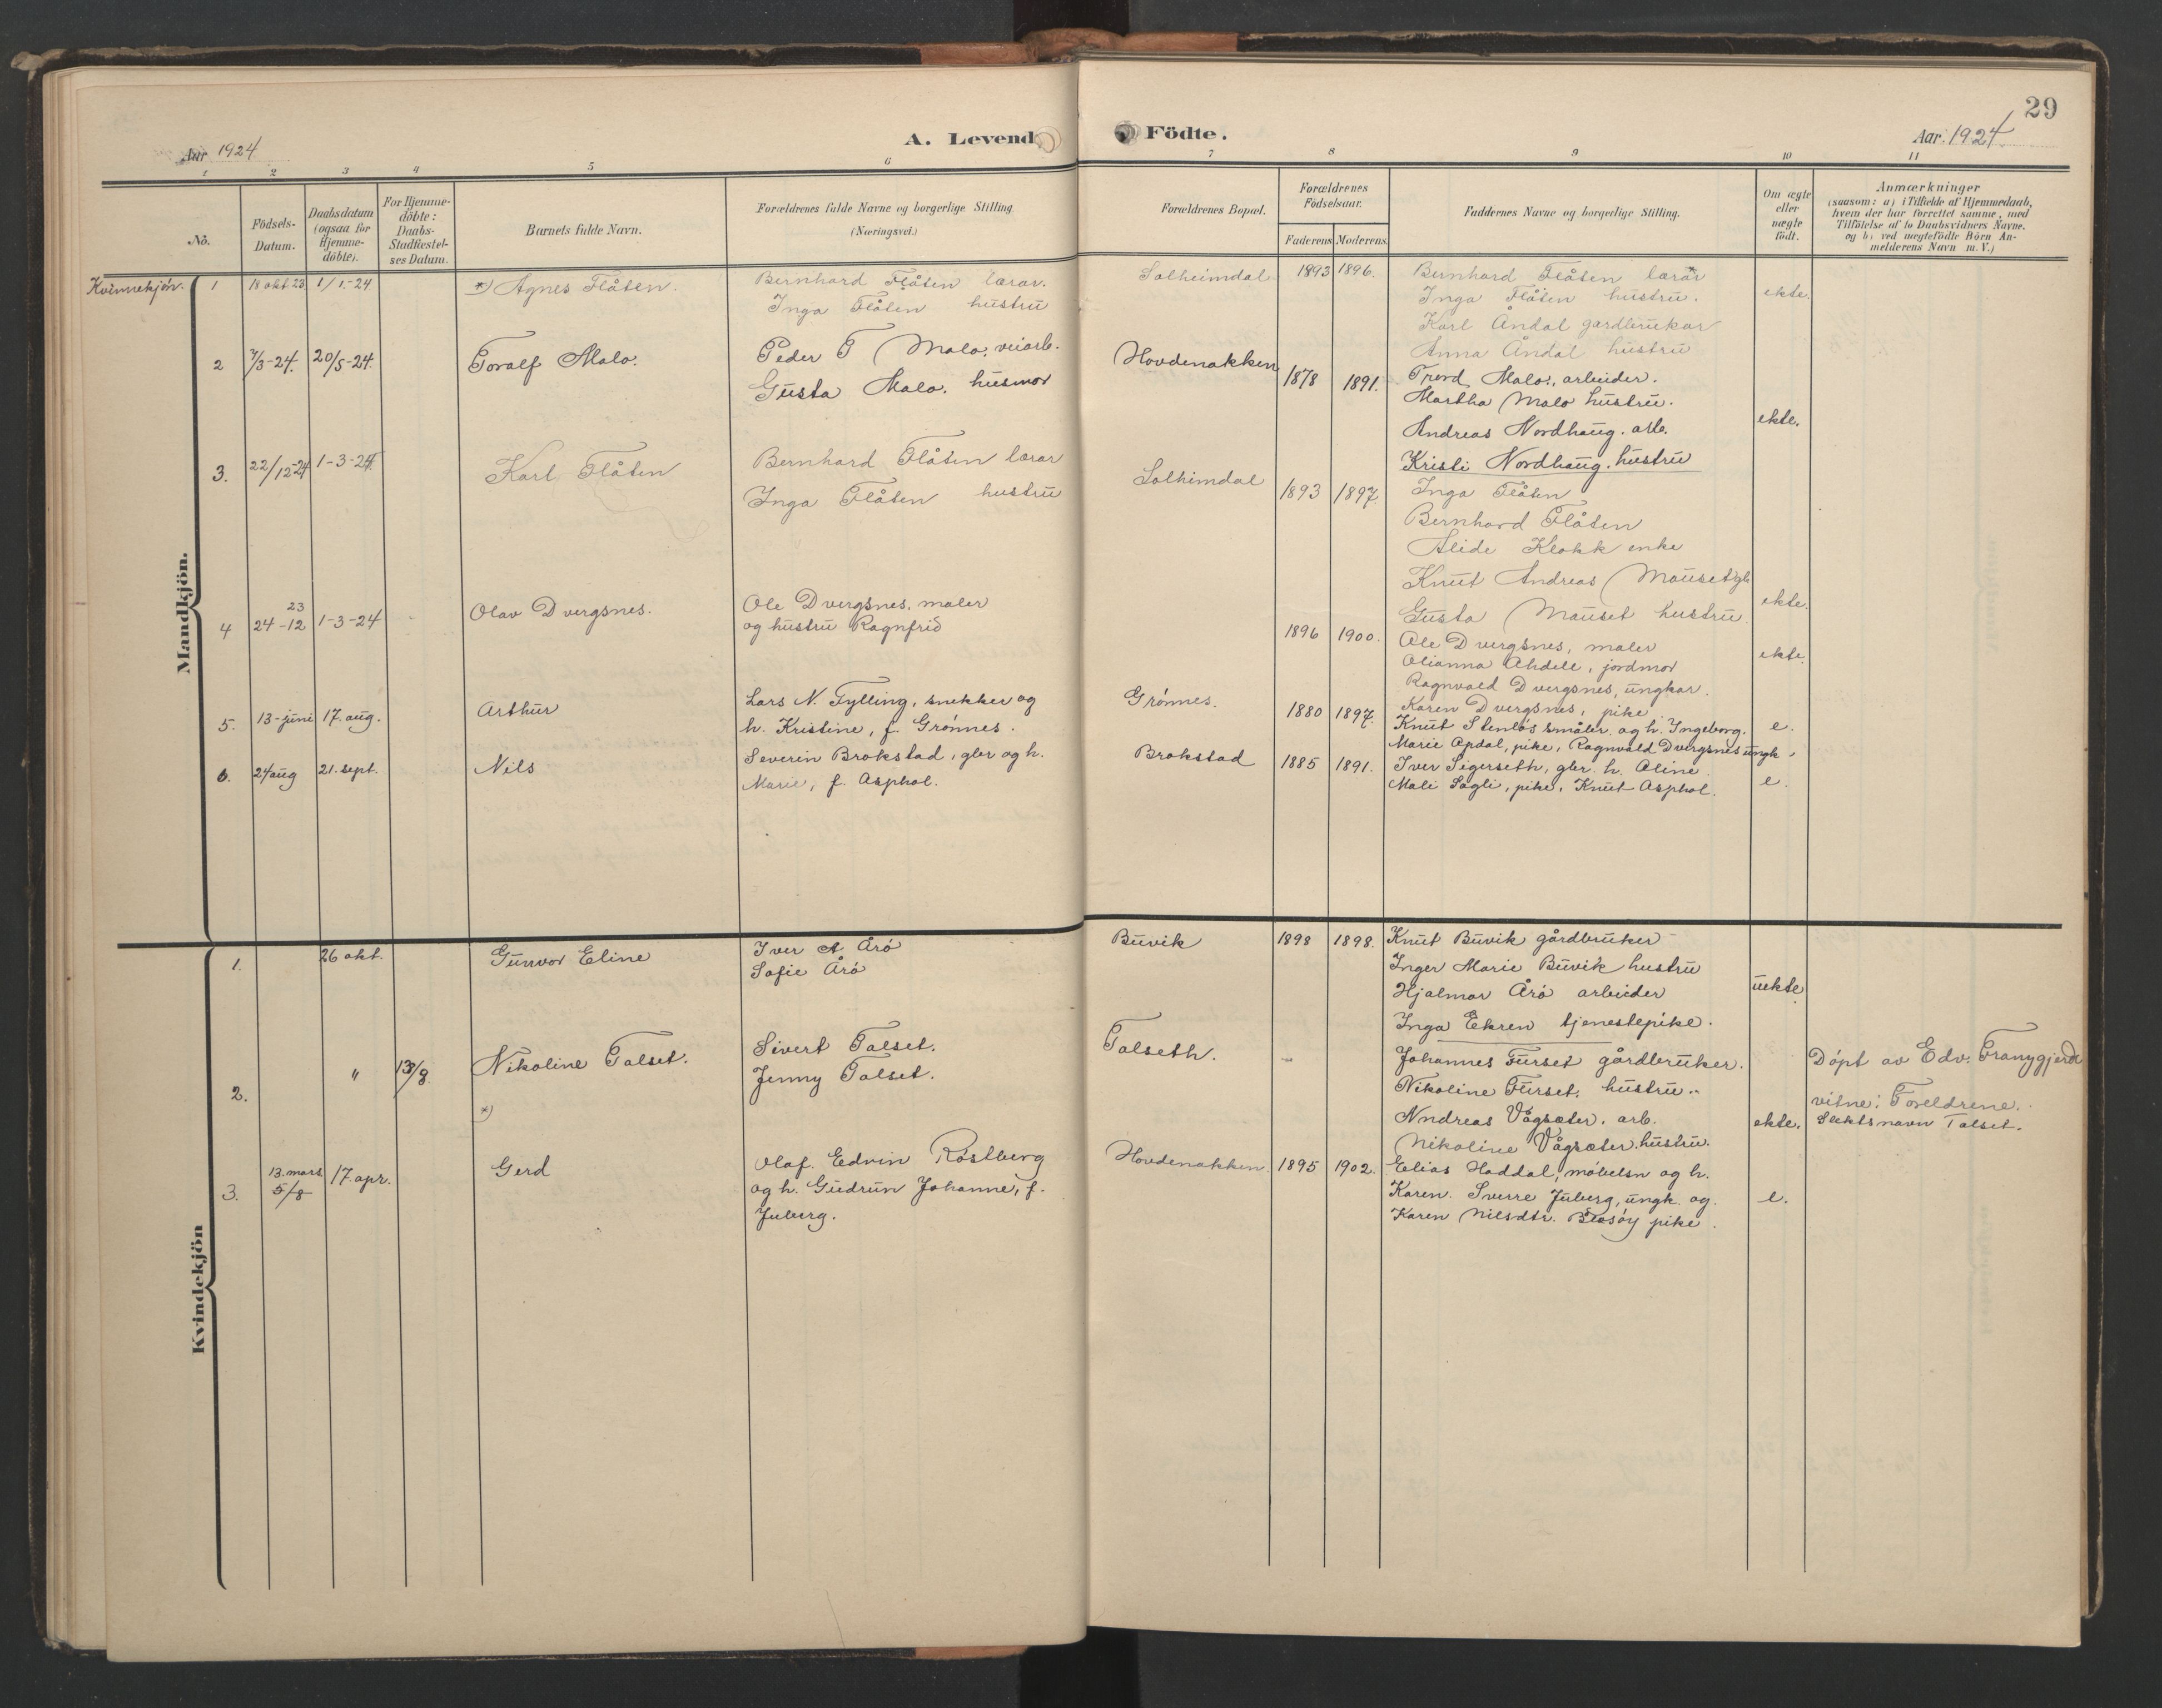 29
Aar 1924
A. Levend
Födte.
Aar 1924
1 2 3 4 5 6 7 8 9 10 11
No.
Födsels-
Datum.
Daabsdatum
(ogsaa for
Hjemme-
döbte).
For Hjemme-
döbte:
Daabs-
Stadfæstel-
ses Datum.
Barnets fulde Navn.
Forældrenes fulde Navne og borgerlige Stilling
(Næringsvei.)
Forældrenes Bopæl.
Forældrenes
Födselsaar.
Faderens Moderens
Faddernes Navne og borgerlige Stilling.
Om ægte
eller
uægte
födt.
Anmærkninger
(saasom: a) i Tilfælde af Hjemmedaab,
hvem der har forrettet samme, med
Tilföielse af to Daabsvidners Navne.
og b) ved uægtefödte Börn An-
melderens Navn m. V.)
Mandkjön.
Kvinnekjön. 1 18 okt 23 1/1-24 *) Agnes Flåten. Bernhard Flåten lærar. Solheimdal 1893 1896. Bernhard Flåten lærar
Inga Flåten hustru Inga Flåten hustru. ekte.
Karl Åndal gardbrukar
Anna Åndal hustru
2 7/3-24. 20/5-24. Toralf Malo. Peder T Malo, veiarb. Hovdenakken 1878 1891. Trond Malo, arbeider.
Gusta Malo. husmor Martha Malo hustru.
Andreas Nordhaug. arb. ekte.
Kristi Nordhaug. hustru
3. 22/12-24 1-3-24. Karl Flåten Bernhard Flåten lærar Solheimdal 1893 1897. Inga Flåten
Inga Flåten hustru Bernhard Flåten
Alide Klokk enke
Knut Andreas Mauset gb
Gusta Mauset hustru ekte.
4 23
24-12 1-3-24 Olav Dvergsnes. Ole Dvergsnes, maler 1896 1900. Ole Dvergsnes, maler
og hustru Ragnfrid Olianna Ahdell, jordmor ekte.
Ragnvald Dvergsnes, ungkar.
Karen Dvergsnes, pike
5. 13-juni 17. aug. Arthur Lars N. Tylling, snekker og Grønnes. 1880 1897. Knut Stenløs småler. og h. Ingeborg. e.
h. Kristine, f. Grønnes. Marie Apdal, pike, Ragnvald Dvergsnes ungk.
6. 24 aug 21. sept. Nils Severin Brokstad, gbr og h. Brokstad 1885 1891. Iver Sigerseth, gbr. h. Aline.
Marie, f. Asphol. Mali Sagli, pike, Knut Asphol. e.
Kvindekjön
1. 26 okt. Gunvor Eline Iver A Årø Buvik 1898 1898. Knut Buvik gårdbruker
Sofie Årø Inger Marie Buvik hustru
Hjalmar Årø arbeider uekte.
Inga Ekren tjenestepike.
2. " 13/8. Nikoline Talset. Sivert Talset. Talseth. Johannes Furset gårdbruker. Døpt av Edv.
Jenny Talset. Nikoline Furset. hustru. vitne: Foreldrene.
*) Andreas Vågsæter. arb. ekte. Slektsnavn Talset.
Nikoline Vågsæter. hustru.
3. 13. mars
5/8 17. apr. Gerd Olaf. Edvin Røslberg Hovdenakken. 1895 1902. Elias Haddal, møbelsn og h.
og h. Gudrun Johanne, f. Karen. Sverre Juberg, ungk. og e.
Juberg. Karen Nilsdtr. pike.